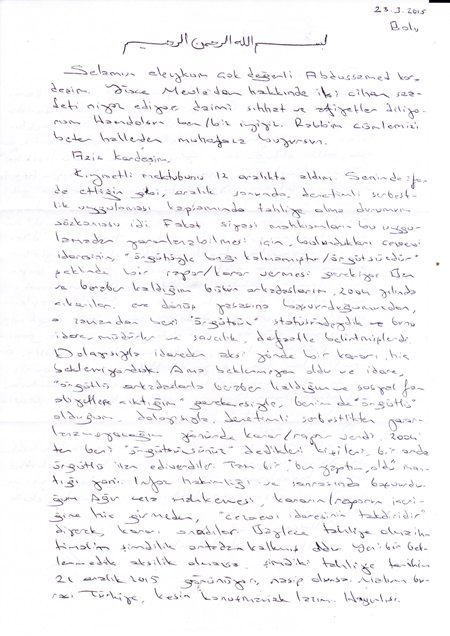 23.3.2015
Bolu
بسم الله الرحمن الرحيم
Selamün aleyküm çok değerli Abdussamed kar-
deşim. Yüce Mevla'dan hakkında iki cihan saa-
deti niyaz ediyor, daimi sıhhat ve afiyetler diliyo-
rum. Hamdolsun ben/biz iyiyiz. Rabbim cümlemizi
beter hallerden muhafaza buyursun.
Aziz kardeşim,
Kıymetli mektubunu 12 aralıkta aldım. Senin de ifa-
de ettiğin gibi, aralık sonunda, denetimli serbest-
lik uygulaması kapsamında tahliye olma durumum
sözkonusu idi. Fakat siyasi mahkumların bu uygu-
lamadan yararlanabilmesi için, bulundukları cezaevi
idaresinin, "örgütüyle bağı kalmamıştır/örgütsüzdür"
şeklinde bir rapor/karar vermesi gerekiyor. Ben
ve beraber kaldığım bütün arkadaşlarım, 2004 yılında
çıkarılan, eve dönüş yasasına başvurduğumuzdan,
o zamandan beri "örgütsüz" statüsündeydik ve bunu
idare, müdürler ve savcılık, defaatle belirtmişlerdi.
Dolayısıyla idareden aksi yönde bir kararı, hiç
beklemiyorduk. Ama beklenmeyen oldu ve idare,
"örgütlü arkadaşlarla beraber kaldığım ve sosyal fa-
aliyetlere çıktığım" gerekçesiyle, benim de "örgütlü"
olduğum, dolayısıyla, denetimli serbestlikten yarar-
lanamayacağım yönünde karar/rapor verdi. 2004'
ten beri "örgütsüzsünüz" dedikleri kişileri, bir anda
örgütlü ilan ediverdiler. Tam bir "ben yaptım, oldu" man-
tığı yani. İnfaz hakimliği ve sonrasında başvurdu-
ğum Ağır ceza mahkemesi, kararın/raporun içeri-
ğine hiç girmeden, "cezaevi idaresinin takdiridir"
diyerek, kararı onadılar. Böylece tahliye olma ih-
timalim şimdilik ortadan kalkmış oldu. Yeni bir bek-
lenmedik aksilik olmazsa, şimdiki tahliye tarihim
21 aralık 2015 görünüyor, nasip olursa. Malum bu-
rası Türkiye, kesin konuşmamak lazım. Hayırlısı.